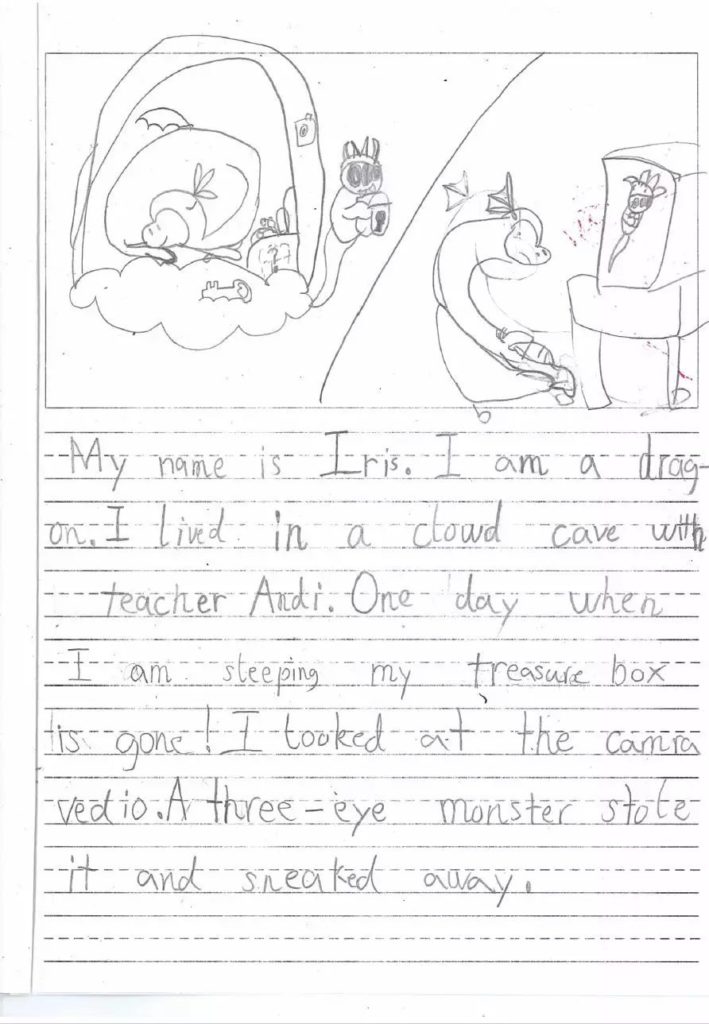 My name is Iris. I am a drag-
on. I lived in a clowd cave with
teacher Andi. One day when
I am sleeping my treasure box
is gone! I looked at the camra
vedio. A three-eye monster stole
it and sneaked away.